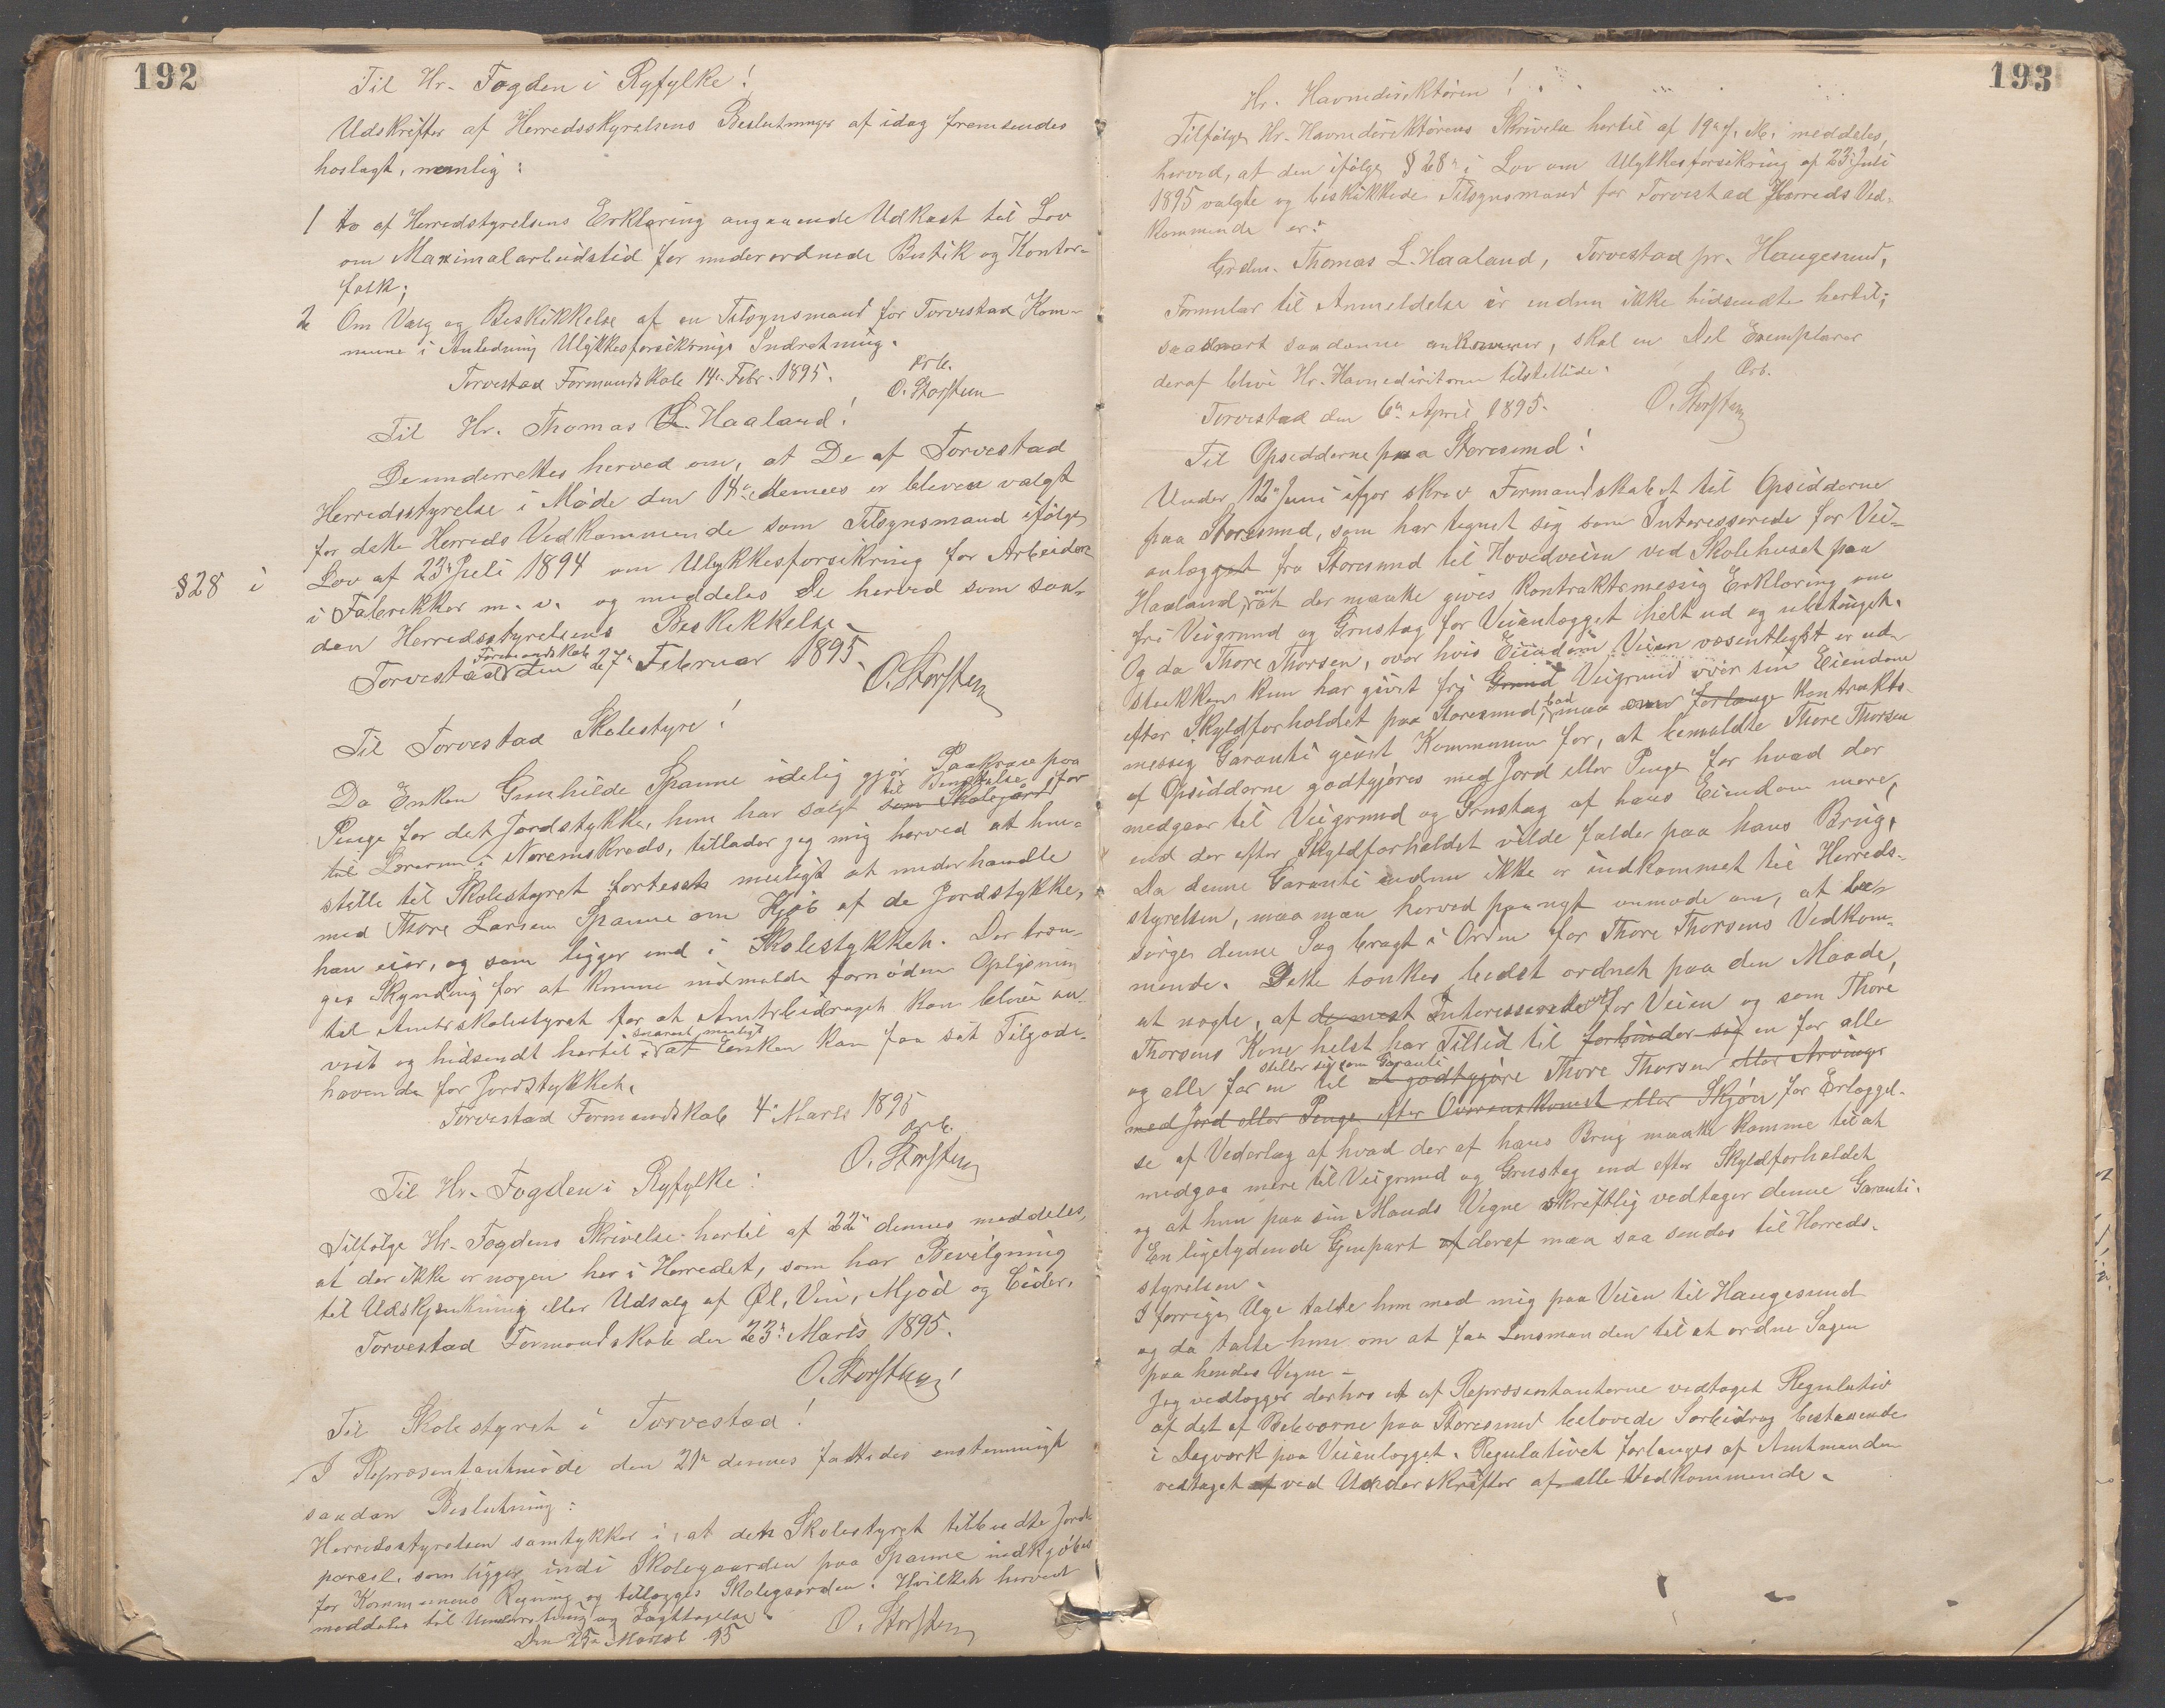 192
Til Hr. Fogden i Ryfylke!
Udskrifter af Herredsstyrelsens Beslutninger af idag fremsendes
hoslagt, nemlig:
1 to af Herredstyrelsens Erklæring angaaende Udkast til Lov
om Maximalarbeidstid for underordnede Butik og Kontor-
folk;
2 Om Valg og Beskikkelse af en Tilsynsmand for Torvestad Kom-
mune i Anledning Ulykkesforsikrings Indretning.
Torvestad Formandskab 14. Febr. 1895.
Ærb.
O. Storsteen
Til Hr. Thomas L. Haaland!
De underrettes herved om, at De af Torvestad
Herredsstyrelse i Møde den 14de dennes er bleven valgt
for dette Herreds Vedkommende som Tilsynsmand ifølge
§28 i Lov af 23de Juli 1894 om Ulykkesforsikring for Arbeidere
i Fabrikker m. v. og meddeles De herved som saa-
dan Herredsstyrelsens Beskikkelse.
Torvestad Formandskab den 27de Februar 1895.
O. Storsteen
Til Torvestad Skolestyre!
Da Enken Gunhilde Spanne idelig gjør Paakrav paa
Penge for det Jordstykke, hun har solgt som Skolejord til Benyttelse for
til Læreren i Noremskreds, tillader jeg mig herved at hen-
stille til Skolestyret fortsest muligt at underhandle
med Thore Larsen Spanne om Kjøb af de Jordstykke,
han eier, og som ligger ind i Skolestykket. Der træn-
ges Skynding for at kunne indmelde fornøden Oplysning
til Amtsskolestyret for at Amtsbidraget kan blive an-
vist og hidsendt hertil snarest muligt at Enken kan faa sit Tilgode-
havende for Jordstykket.
Torvestad Formandskab 4de Marts 1895
Ærb.
O. Storsteen
Til Hr. Fogden i Ryfylke:
Tilfølge Hr. Fogdens Skrivelse hertil af 22de dennes meddeles,
at der ikke er nogen her i Herredet, som har Bevilgning
til Udskjænkning eller Udsalg af Øl, Vin, Mjød og Cider.
Torvestad Formandskab den 23de Marts 1895.
O. Storsteen
Til Skolestyret i Torvestad!
I Repræsentantmøde den 21de dennes fattedes enstemmigt
saadan Beslutning:
Herredsstyrelsen samtykker i, at den Skolestyret tilbudte Jord-
parcel, som ligger inde i Skolegaarden paa Spanne indkjøbes
for Kommunens Regning og tillægges Skolegaarden. Hvilket herved
meddeles til Underretning og Iagttagelse.
Den 25de Marts 95
O. Storsteen
193
Hr. Havnedirektøren!
Tilfølge Hr. Havnedirektørens Skrivelse hertil af 19de f. M. meddeles,
herved, at den ifølge §28de i Lov om Ulykkesforsikring af 23de Juli
1895 valgte og beskikkede Tilsynsmand for Torvestad Herreds Ved-
kommende er:
Grdm. Thomas L. Haaland, Torvestad pr. Haugesund,
Formular til Anmeldelse er endnu ikke hidsendte hertil;
saasnart saadanne ankommer, skal en Del Exemplarer
deraf blive Hr. Havnedirktøren tilstillede.
Ærb.
Torvestad den 6te April 1895.
O. Storsteen
Til Opsidderne paa Storesund!
Under 12te Juni ifjor skrev Formandskabet til Opsidderne
paa Storesund, som har tegnet sig som Interesserede for Vei-
anlægget fra Storesund til Hovedveien ved Skolehuset paa
Haaland, om at der maatte gives kontraktsmessig Erklæring om
fri Veigrund og Grustag for Veianlægget helt ud og ubetinget.
Og da Thore Thorsen, over hvis Eiendom Veien væsentligst er ud-
stukken kun har givet fri Grund Veigrund over sin Eiendom
efter Skyldforholdet paa Storesund, bad maa om forlange kontrakts-
messig Garanti givet Kommunen for, at bemeldte Thore Thorsen
af Opsidderne godtgjøres med Jord eller Penge for hvad der
medgaar til Veigrund og Grustag af hans Eiendom mere,
end der efter Skyldforholdet vilde falde paa hans Brug.
Da denne Garanti endnu ikke er indkommet til Herreds-
styrelsen, maa man herved paanyt anmode om, at be-
sørge denne Sag bragt i Orden for Thore Thorsens Vedkom-
mende. Dette tænkes bedst ordnet paa den Maade,
at nogle, af de mest Interesserede for Veien og som Thore
Thorsens Kone helst har Tillid til forbinder sig en for alle
og alle for en til stiller sig som Garanti at godtgjøre Thore Thorsen eller Arvinger
med Jord eller Penge efter Overenskomst eller Skjøn for Erlæggel-
se af Vederlag af hvad der af hans Brug maatte komme til at
medgaa mere til Veigrund og Grustag end efter Skyldforholdet
og at hun paa sin Mands Vegne skriftlig vedtager denne Garanti.
En ligelydende Gjenpart af deraf maa saa sendes til Herreds-
styrelsen.
I forrige Uge talte hun med mig paa Veien til Haugesund
og da talte hun om at faa Lensmanden til at ordne Sagen
paa hendes Vegne.
Jeg vedlægger derhos et af Repræsentanterne vedtaget Regulativ
af det af Beboerne paa Storesund belovede Særbidrag bestaaende
i Dagverk paa Veianlægget. Regulativet forlanges af Amtmanden
vedtaget af ved Underskrifter af alle Vedkommende.